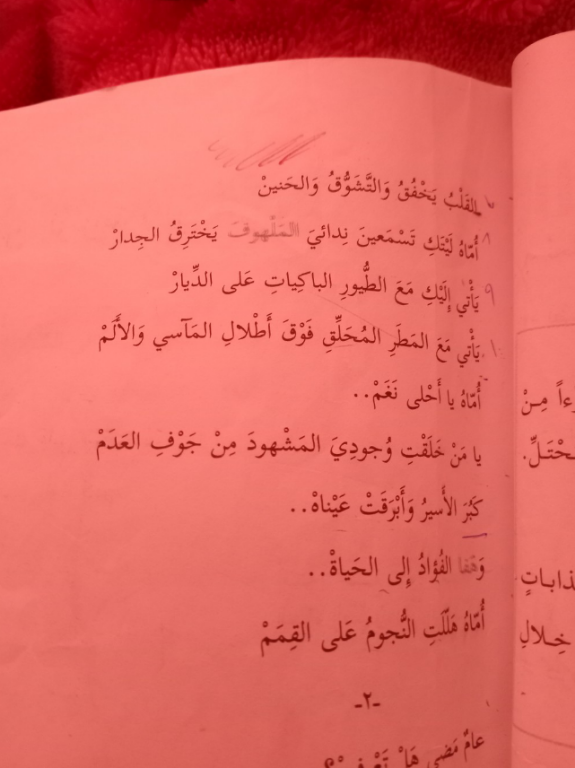 القَلْبُ يَخْفُقُ وَالتَّشَوُّقُ وَالحَنينْ
٨ أُمّاهُ لَيْتَكِ تَسْمَعينَ نِدائيَ المَلْهوفَ يَخْتَرِقُ الجِدارْ
٩ يَأْتي إِلَيْكِ مَعَ الطُّيورِ الباكِياتِ عَلى الدِّيارْ
١٠ يَأْتي مَعَ المَطَرِ المُحَلِّقِ فَوْقَ أَطْلالِ المَآسي وَالأَلَمْ
أُمّاهُ يا أَحْلى نَغَمْ..
يا مَنْ خَلَقْتِ وُجودِيَ المَشْهودَ مِنْ جَوْفِ العَدَمْ
كَبُرَ الأَسيرُ وَأَبْرَقَتْ عَيْناهْ..
وَهَفا الفُؤادُ إِلى الحَياةْ..
أُمّاهُ هَلَّلَتِ النُّجومُ عَلى القِمَمْ
-٢-
عامٌ مَضى هَلْ
ءاً مِـنْ
حْتَـلِّ.
ذابـاتٍ
خِـلالِ